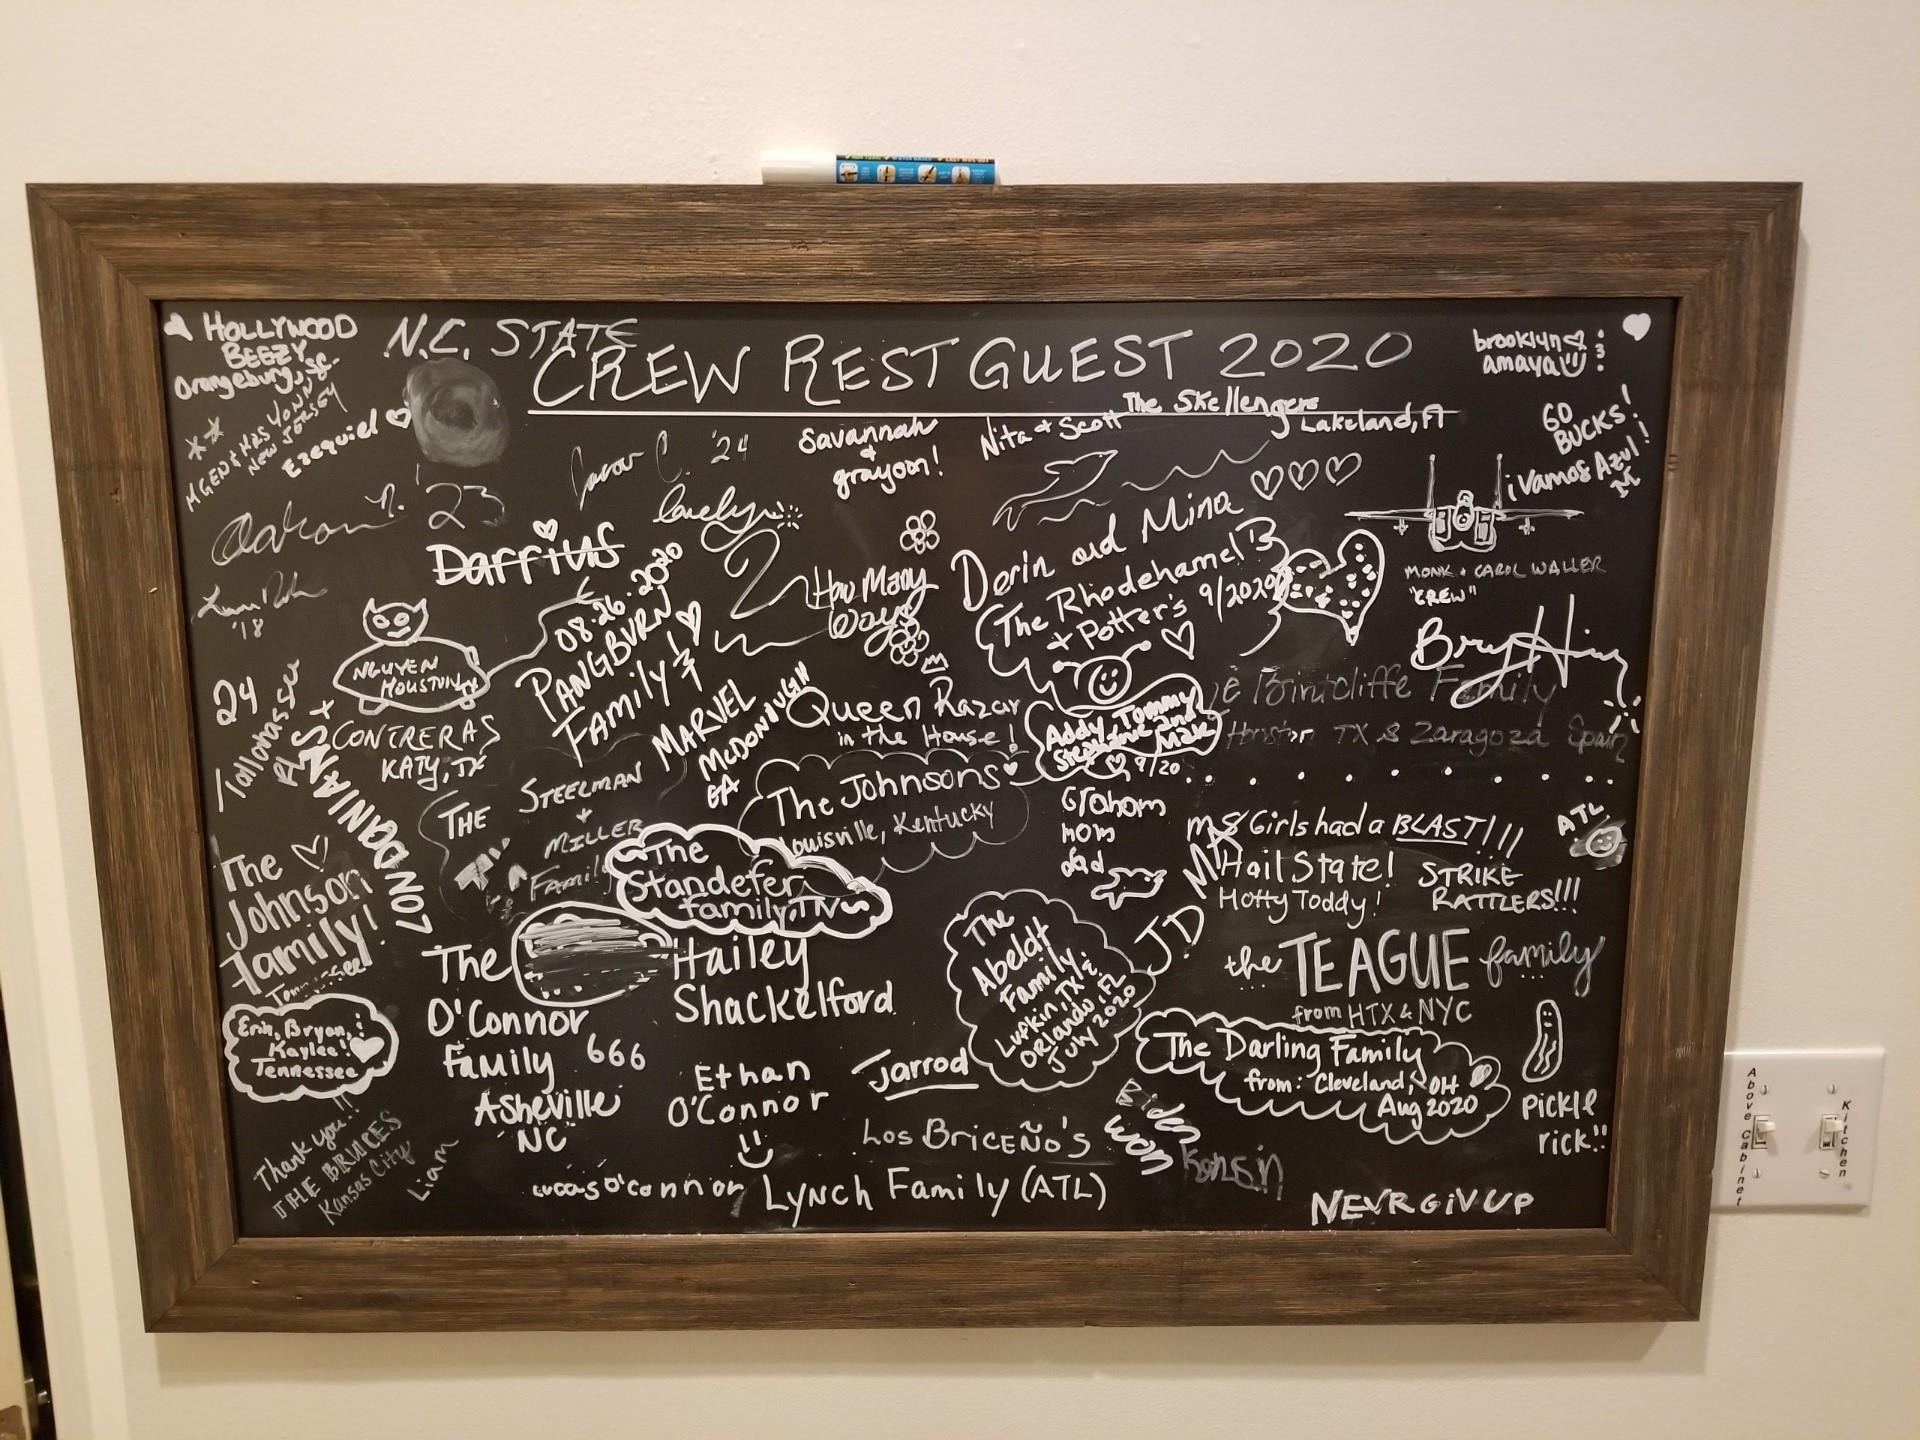 HOLLYWOOD
BEEZY
Orangeburg, SC
N.C. STATE
CREW REST GUEST 2020
brooklyn
amaya
NEW JERSEY
Ezequiel
The Skellengers
Nita & Scott
Lakeland, Fl
Savannah
&
grayson!
GO
BUCKS!
¡Vamos Azul!
M
C. '24
Aaron N. '23
lovely
Darrius
'18
How Many
Days
Dorin and Mina
The Rhodehamel's
+ Potter's 9/2020
MONK + CAROL WALLER
"CREW"
08.26.2020
PANGBURN
Family!
NGUYEN
HOUSTON
24
CONTRERAS
KATY, TX
MARVEL
McDONOUGH
GA
Queen Razar
in the House!
Addy, Tommy
Stephanie and
Max
9/20
Pointcliffe Family
Houston TX & Zaragoza Spain
THE STEELMAN
+
MILLER
Family
The Johnsons
Louisville, Kentucky
Graham
mom
dad
MS Girls had a BLAST!!!
Hail State!
Hotty Toddy!
STRIKE
RATTLERS!!!
ATL
The
Johnson
Family!
Tennessee
The
Standefer
family, TN
The
O'Connor
Family
Asheville
NC
666
Hailey
Shackelford
The
Abeldt
Family
Lufkin, TX &
Orlando, FL
July 2020
JD
the TEAGUE family
from HTX & NYC
Erin, Bryan,
Kaylee!
Tennessee
Ethan
O'Connor
Jarrod
The Darling Family
from: Cleveland, OH
Aug 2020
PICKLE
rick!!
Thank you!!
THE BRUCES
Kansas City
Liam
Los Briceño's
Biden
won
Lucas O'connor
Lynch Family (ATL)
NEVR GiV UP
Above Cabinet
Kitchen